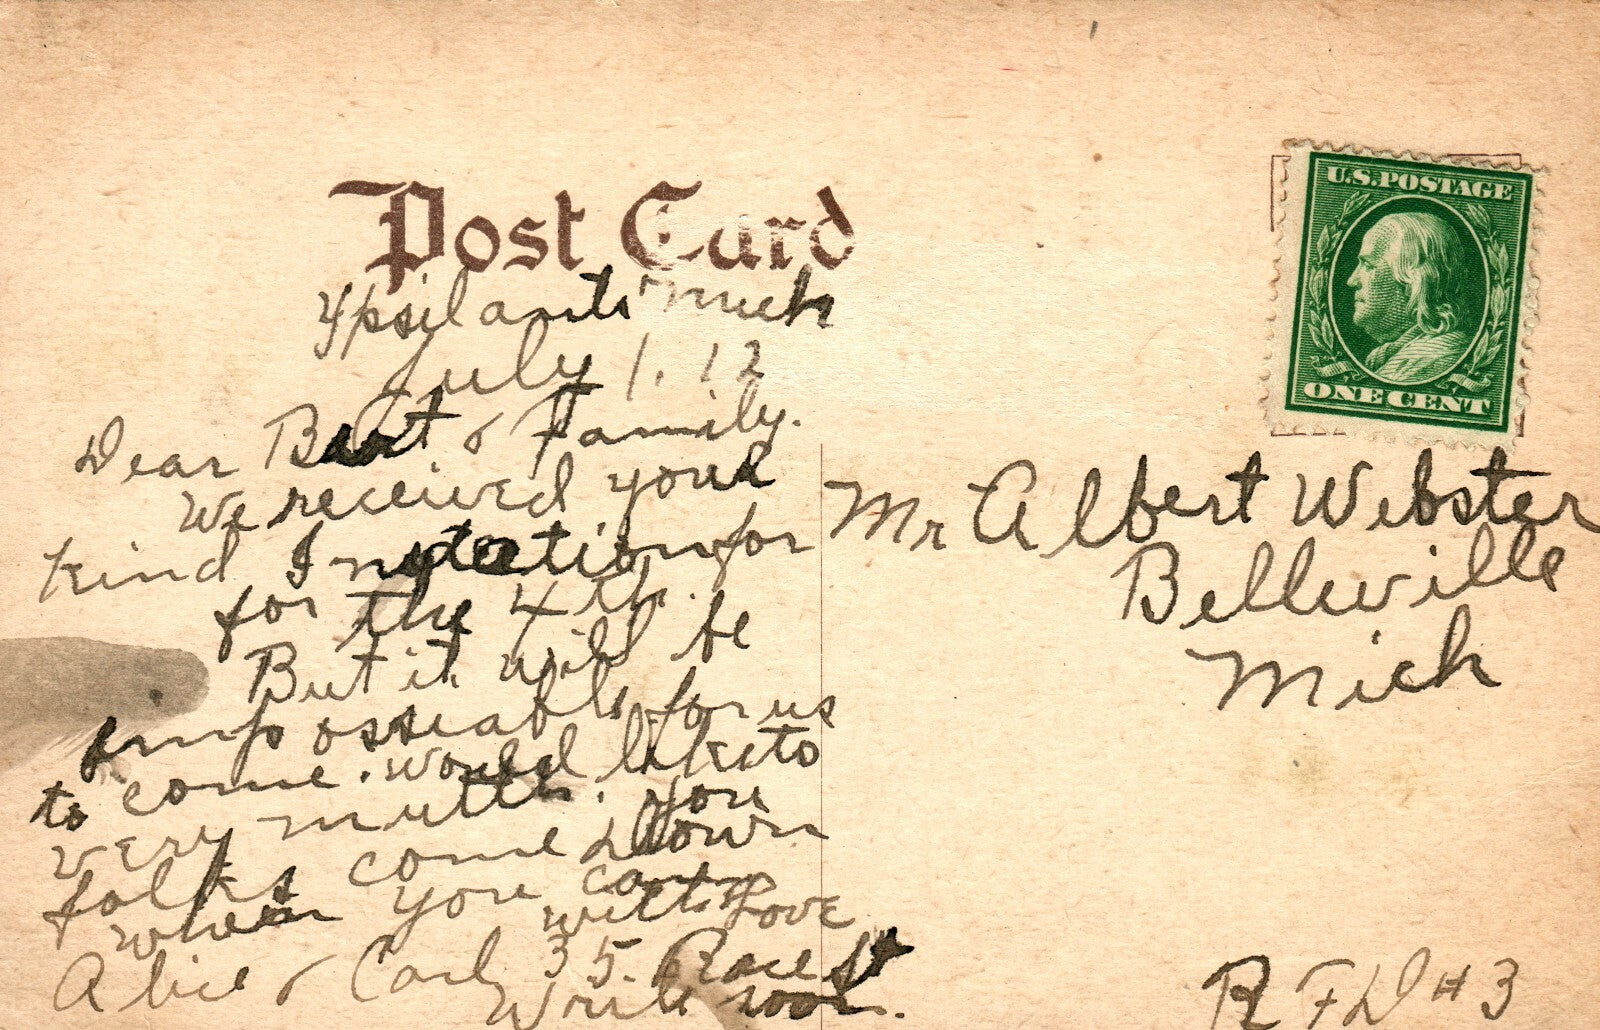 Post Card
U.S. POSTAGE
ONE CENT
Ypsilanti Mich
July 1. 12
Dear Bert & Family.
We received your
kind Invotation for
for the 4th.
But it will be
imposseable for us
to come. would like to
very mutch. you
folks come down
when you can
with Love
Alice & Carl 35. Race St
Write soon.
Mr Albert Webster
Belleville
Mich
R F D # 3